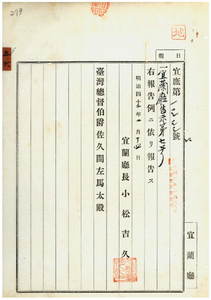 279
日記
宜庶第一二八八號
一宜蘭廳告示第七號
右報告例ニ依リ報告ス
明治四十五年一月 日
宜蘭廳長 小松吉久
臺灣總督伯爵佐久間左馬太殿
宜蘭廳